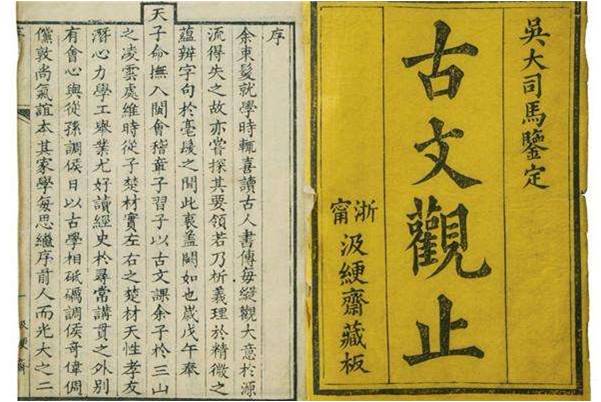 吳大司馬鑑定
古文觀止
浙甯
汲綆齋藏板
序
余束髮就學時輒喜讀古人書傳每縱觀大意於源
流得失之故亦嘗探其要領若乃析義理於精微之
蘊辨字句於毫髮之間此衷蓋闕如也歲戊午奉
天子命撫八閩會稽章子習子以古文課余子於三山
之凌雲處維時從子楚材實左右之楚材天性孝友
潛心力學工舉業尤好讀經史於尋常講貫之外別
有會心與從孫調侯日以古學相砥礪調侯奇偉倜
儻敦尚氣誼本其家學每思繼序前人而光大之二